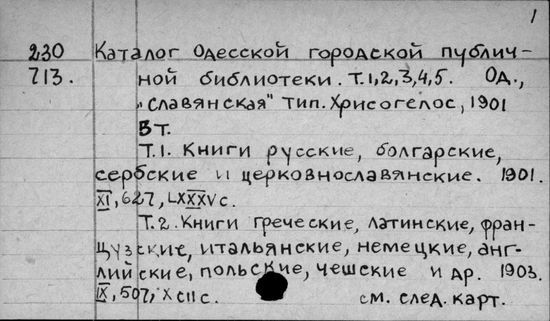 1
230 Каталог Одесской городской публич-
713. ной библиотеки. Т.1,2,3,4,5. Од.,
„Славянская" тип. Хрисогелос, 1901
5 т.
Т.1. Книги русские, болгарские,
сербские и церковнославянские. 1901.
XI, 627, LXXXV с.
Т.2. Книги греческие, латинские, фран-
цузские, итальянские, немецкие, анг-
лийские, польские, чешские и др. 1903.
IX, 507, XCII с. см. след. карт.